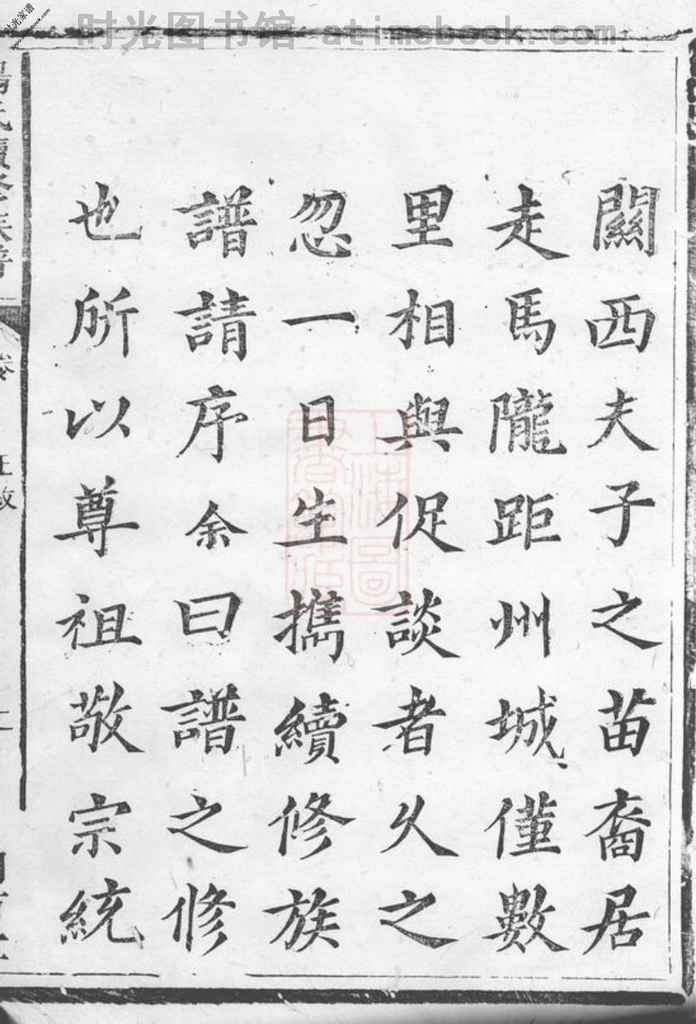 时光图书馆 - atimebook.com
關西夫子之苗裔居
走馬隴距州城僅數
里相與促談者久之
忽一日生攜續修族
譜請序余曰譜之修
也所以尊祖敬宗統
楊氏續修族譜